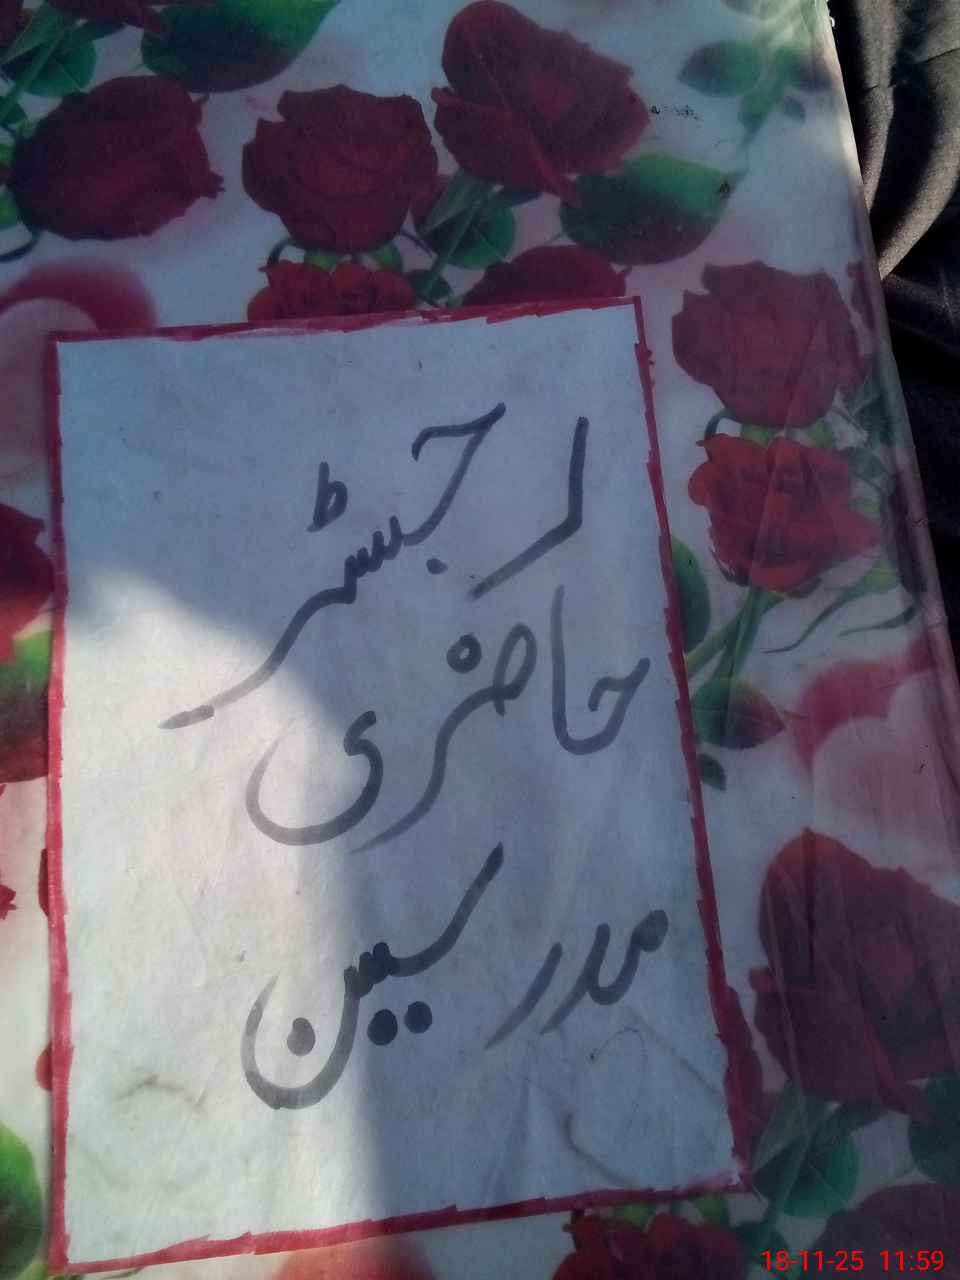 رجسٹر
حاضری
مدرسین
18-11-25 11:59